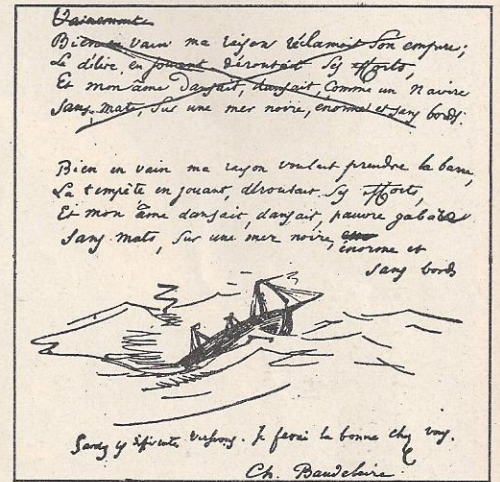 Vainement
Bien en vain ma raison réclamait son empire;
Le délire, en jouant déroutait ses efforts,
Et mon âme dansait, dansait, comme un navire
Sans mats, sur une mer noire, énorme et sans bords.
Bien en vain ma raison voulait prendre la barre,
La tempête en jouant, déroutait ses efforts,
Et mon âme dansait, dansait, pauvre gabare
Sans mats, sur une mer noire, énorme et
sans bords
Gardez différentes versions. Je ferai la bonne chez vous.
Ch. Baudelaire.